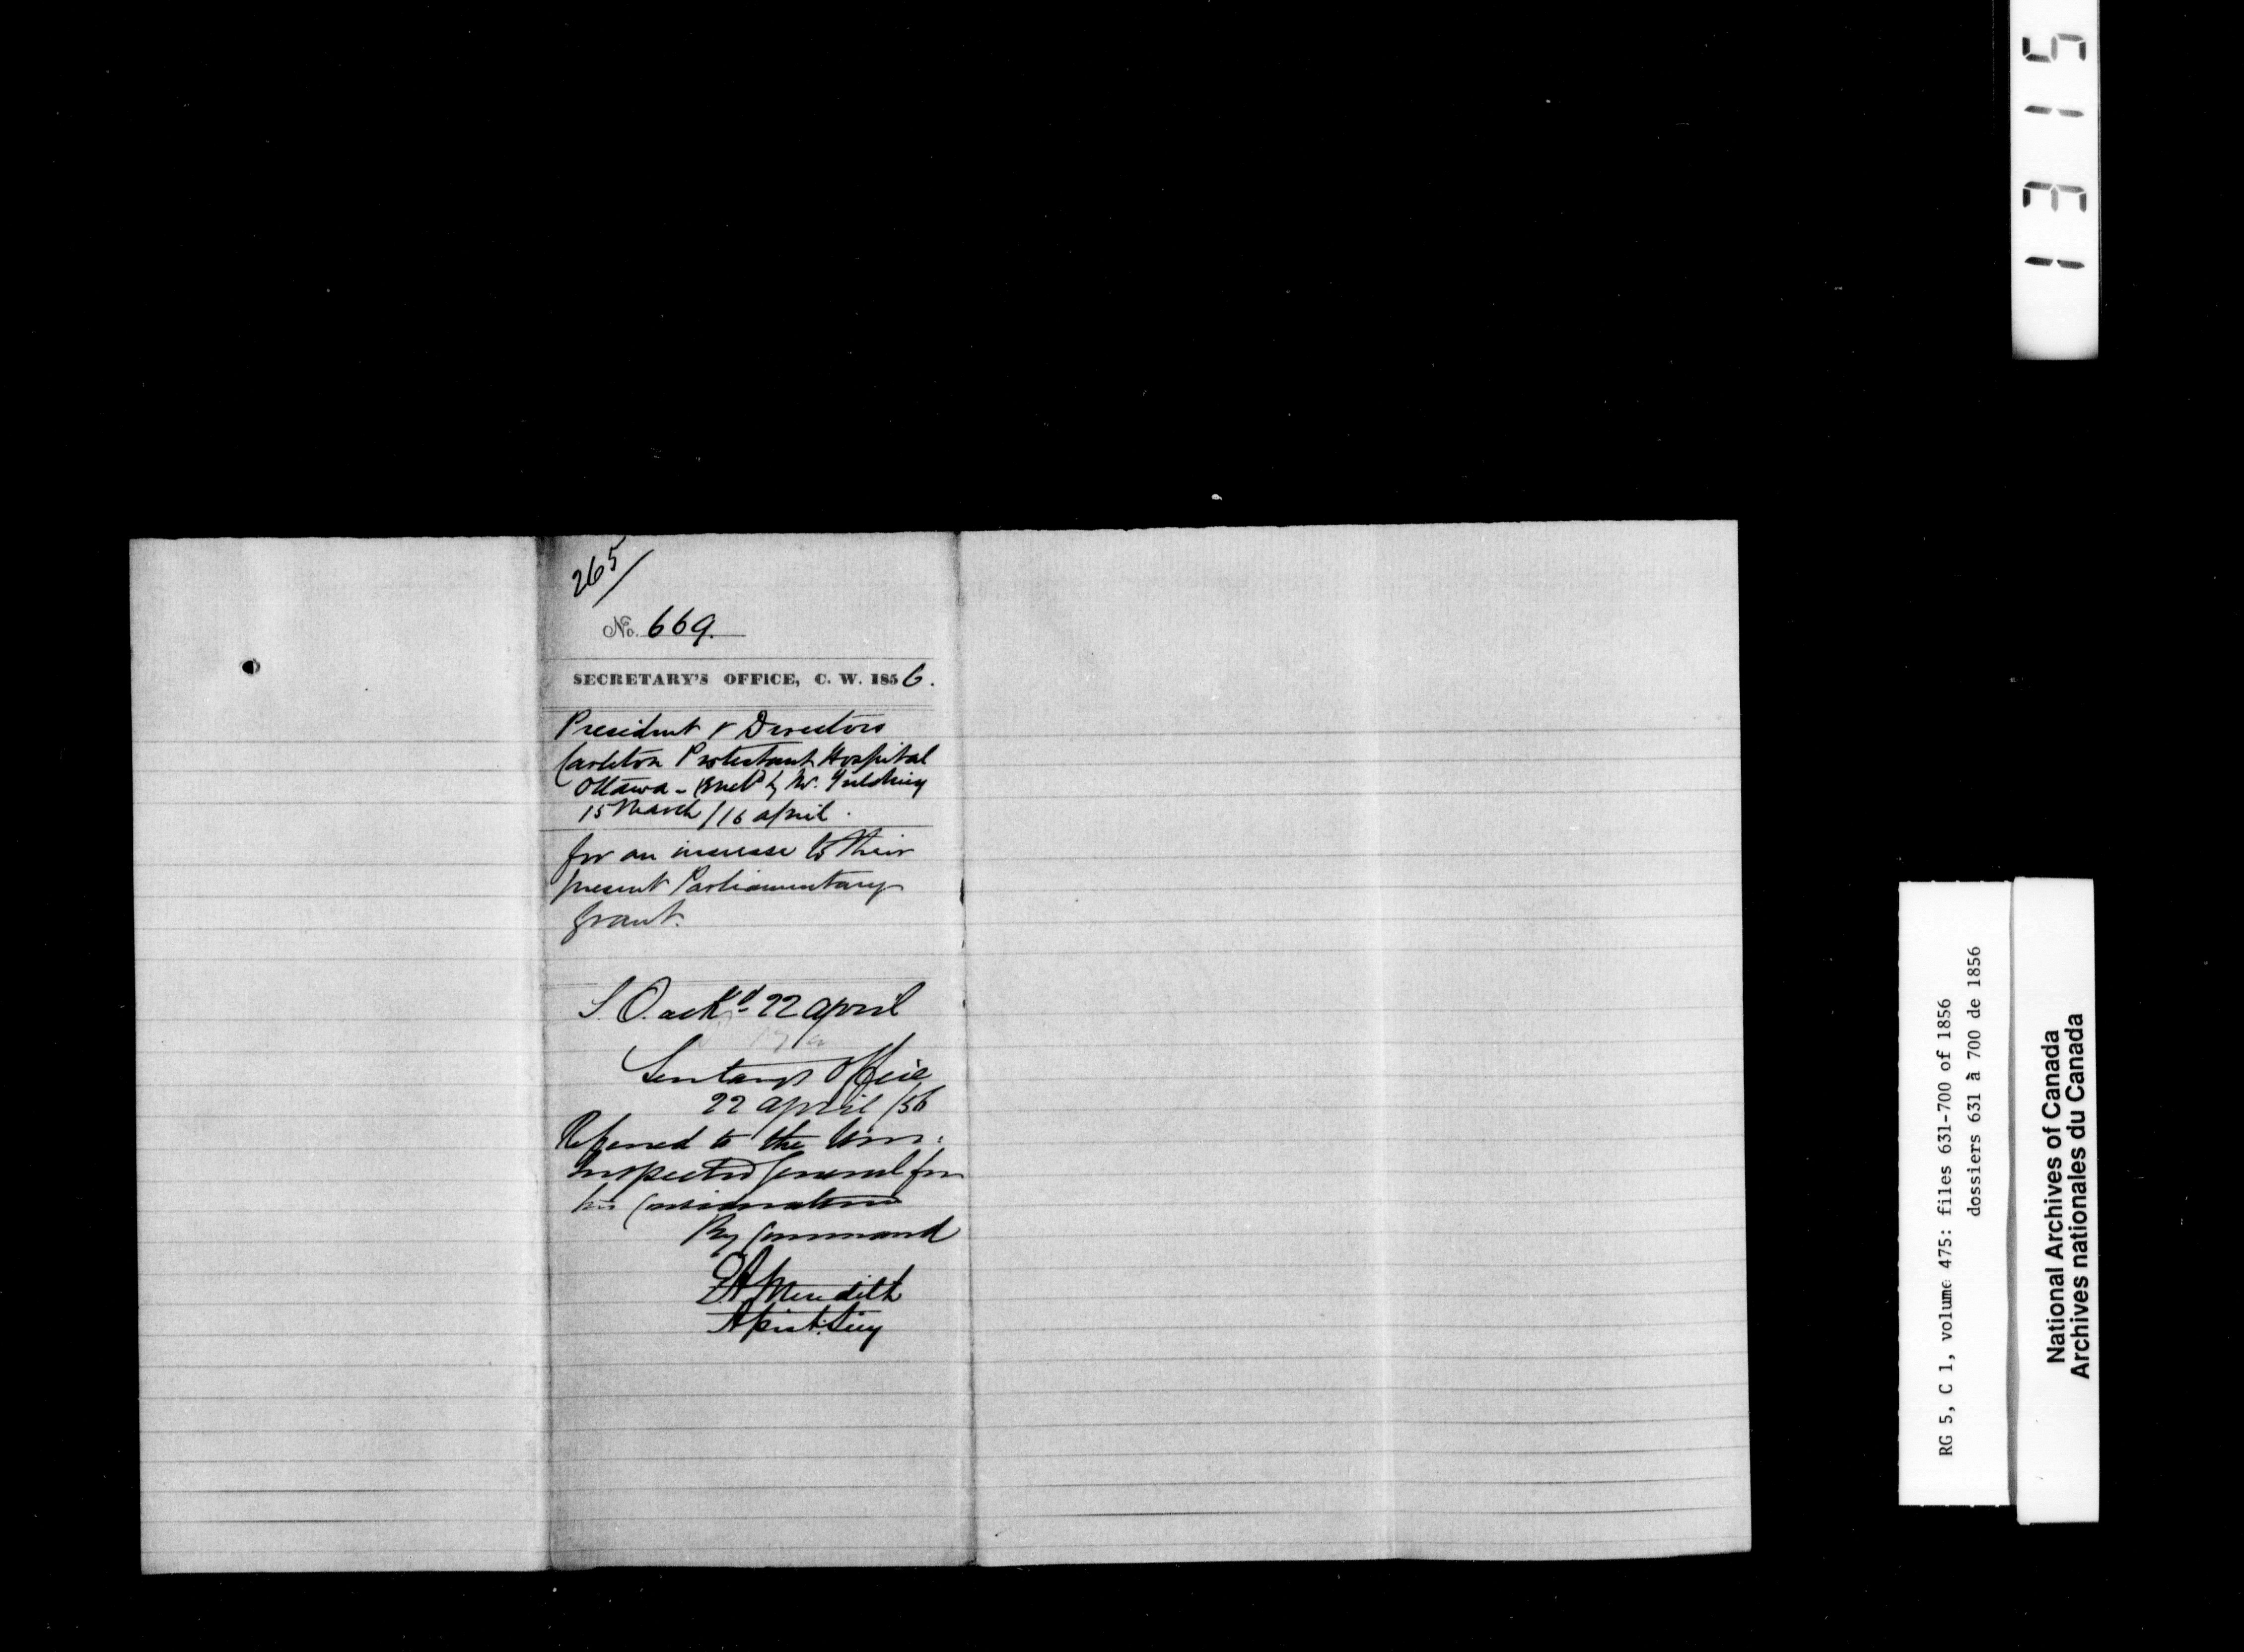 265/
No. 669.
SECRETARY'S OFFICE, C. W. 1856.
President & Directors
Carleton Protestant Hospital
Ottawa - by Mr.
15 March / 16 April.
for an increase to their
present Parliamentary
Grant.
S.O. ackd 22 April
Secretarys Office
22 April /56
Referred to the Hon.
Inspector General for
his consideration
By Command
E A Meredith
Assist. Secy
1315
RG 5, C 1, volume 475: files 631-700 of 1856
dossiers 631 à 700 de 1856
National Archives of Canada
Archives nationales du Canada